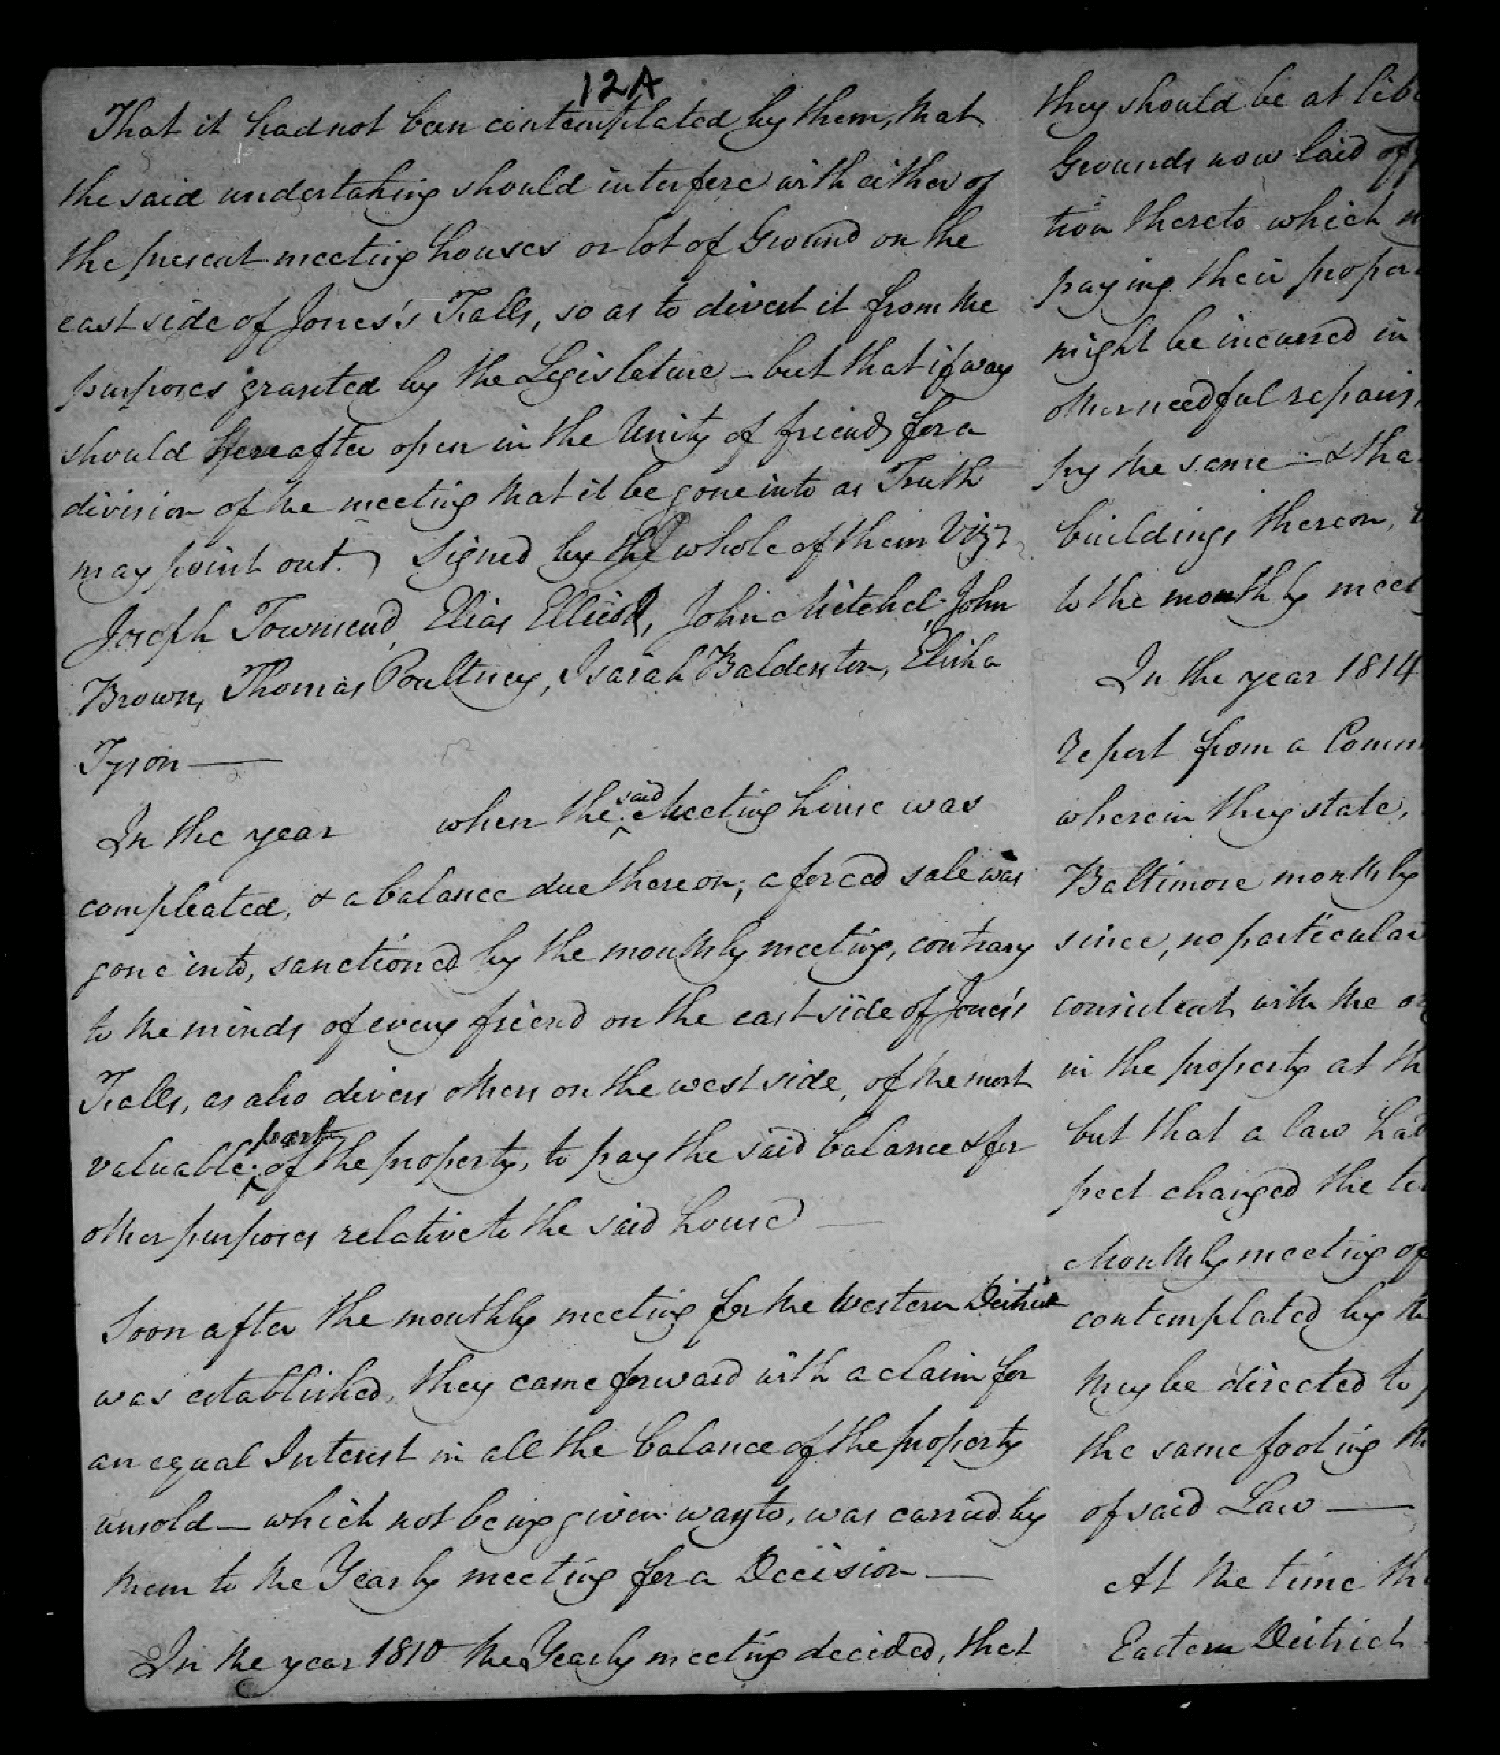 12A
That it had not been contemplated by them, that
the said undertaking should interfere with either of
the present meeting houses or lot of Ground on the
east side of Jones's Falls, so as to divert it from the
purposes granted by the Legislature – but that if way
should hereafter open in the Unity of friends for a
division of the meeting that it be gone into as Truth
may point out.) Signed by the whole of them Vizt
Joseph Townsend, Elias Ellicott, John Mitchel, John
Brown, Thomas Poultney, Isaiah Balderston, Elisha
Tyson —
In the year when the said Meeting house was
compleated, & a balance due thereon; a forced sale was
gone into, sanctioned by the monthly meeting, contrary
to the minds of every friend on the east side of Jones's
Falls, as also divers others on the west side, of the most
valuable part of the property, to pay the said balance & for
other purposes relative to the said house —
Soon after the monthly meeting for the Western District
was established, they came forward with a claim for
an equal Interest in all the balance of the property
unsold — which not being given way to, was carried by
them to the Yearly meeting for a Decision —
In the year 1810 the Yearly meeting decided, that
they should be at lib
Grounds now laid off
tion thereto which m
paying their propor
might be incurred in
other needful repairs,
by the same – & tha
buildings thereon,
to the monthly meet
In the year 1814
report from a Comm
wherein they state,
Baltimore monthly
since, no particular
consistent with the
in the property at th
but that a law had
pect changed the te
Monthly meeting of
contemplated by th
may be directed to
the same footing th
of said Law —
At the time th
Eastern District